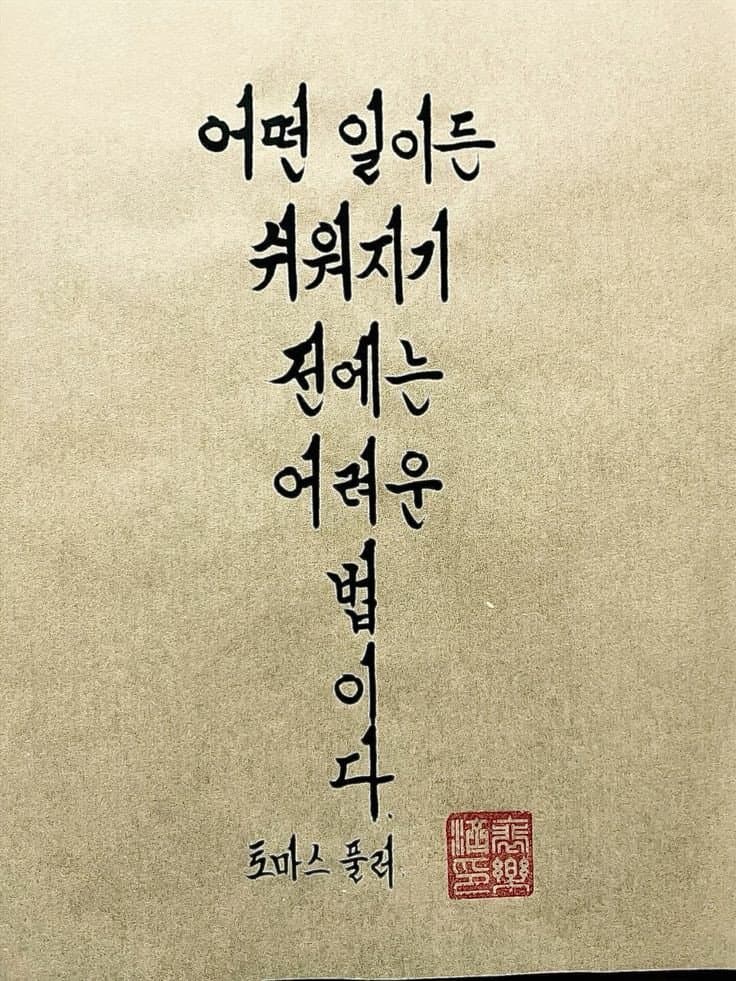 어떤 일이든
쉬워지기
전에는
어려운
법
이
다.
토마스 풀러